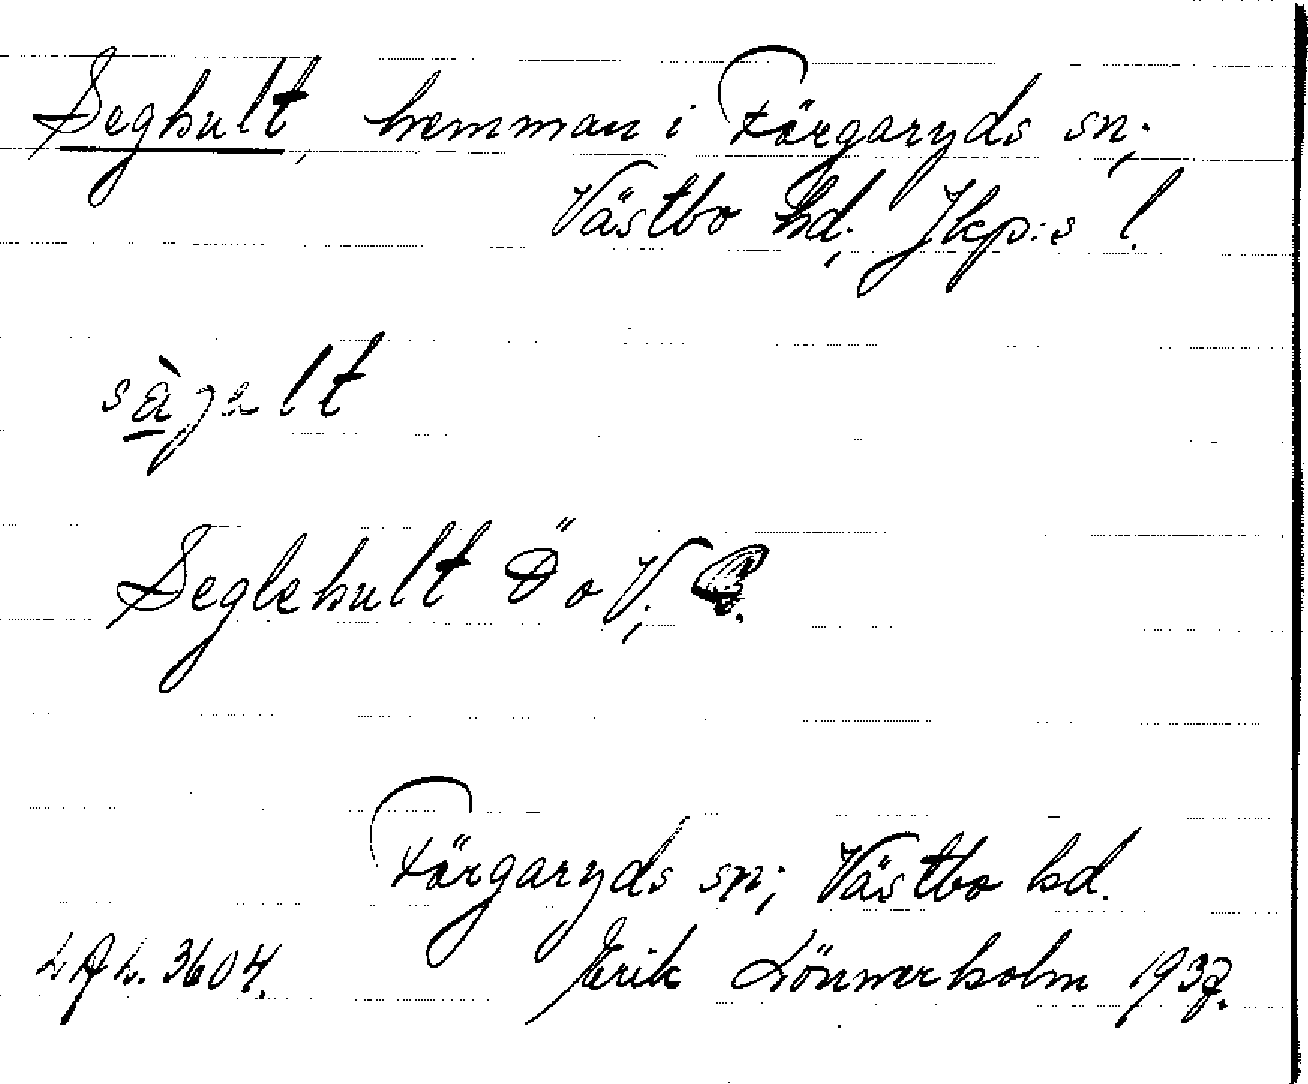 Seghult, hemman i Färgaryds sn;
Västbo hd; Jkp:s l.
sàgult
Seglehult Ö o V;
Färgaryds sn; Västbo hd.
LAL. 3604. Erik Lönnerholm 1937.